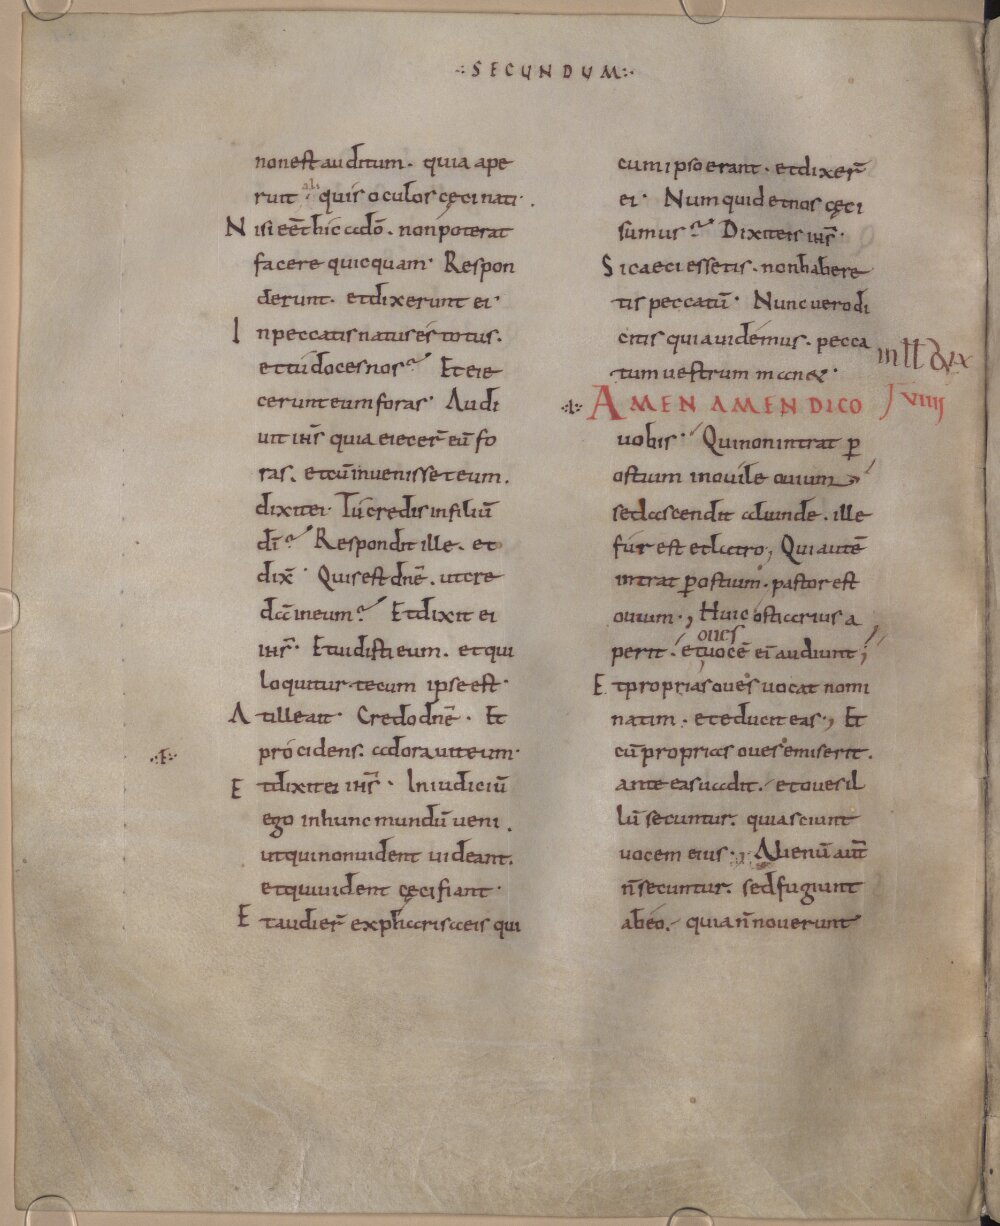 SECUNDUM
non est auditum. quia ape
ruit quis oculos cęci nati.
Nisi eēt hic a dō. non poterat
facere quicquam. Respon
derunt. et dixerunt ei.
In peccatis natus es totus.
et tu doces nos? Et eie
cerunt eum foras. Audi
uit ihs̄ quia eiecer̄ eū fo
ras. et cū inuenisset eum.
dixit ei. Tu credis in filiū
dī? Respondit ille. et
dix̄. Quis est dnē. ut cre
dā in eum? Et dixit ei
ihs̄. Et uidisti eum. et qui
loquitur tecum ipse est.
At ille ait. Credo dnē. Et
procidens. adorauit eum.
Et dixit ei ihs̄. In iudiciū
ego in hunc mundū ueni.
ut qui non uident uideant.
et qui uident cęci fiant.
Et audier̄ ex pharisaeis qui
cum ipso erant. et dixer̄
ei. Numquid et nos cęci
sumus? Dixit eis ihs̄.
Si caeci essetis. non habere
tis peccatū. Nunc uero di
citis quia uidemus. pecca
tum uestrum manet.
AMEN AMEN DICO VIIII
uobis. Qui non intrat ꝑ
ostium in ouile ouium
sed ascendit aliunde. ille
fur est et latro, Qui autē
intrat ꝑ ostium. pastor est
ouium., Huic ostiarius a
oues
perit. et uocē eī audiunt;
Et proprias oues uocat nomi
natim. et educit eas., Et
cū proprias oues emiserit.
ante eas uadit. et oues il
lū secuntur. quia sciunt
uocem eius., Alienū aut̄
n̄ secuntur. sed fugiunt
ab eo. quia n̄ nouerunt